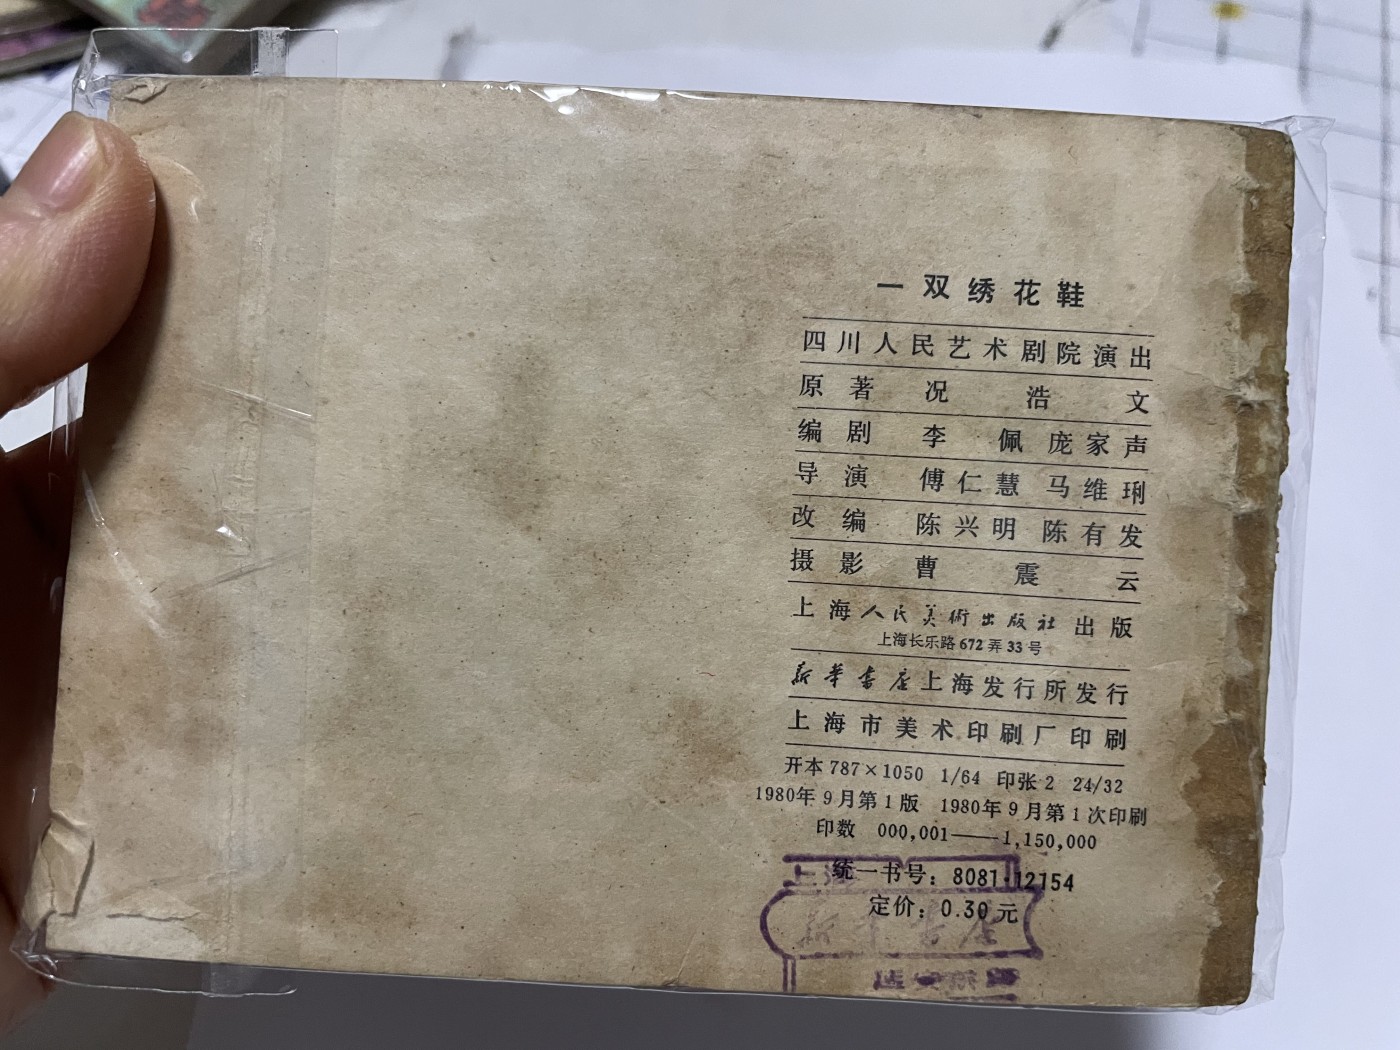 一双绣花鞋
四川人民艺术剧院演出
原著 况浩文
编剧 李佩 庞家声
导演 傅仁慧 马维琍
改编 陈兴明 陈有发
摄影 曹震云
上海人民美術出版社出版
上海长乐路672弄33号
新华书店上海发行所发行
上海市美术印刷厂印刷
开本787×1050 1/64 印张2 24/32
1980年9月第1版 1980年9月第1次印刷
印数 000,001——1,150,000
统一书号：8081·12154
定价：0.30元
上海
新华书店